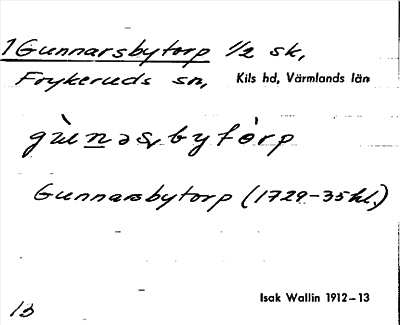 1 Gunnarsbytorp 1/2 sk,
Frykeruds sn, Kils hd, Värmlands län
Gunnarsbytorp (1729-35 hl.)
Isak Wallin 1912-13
13